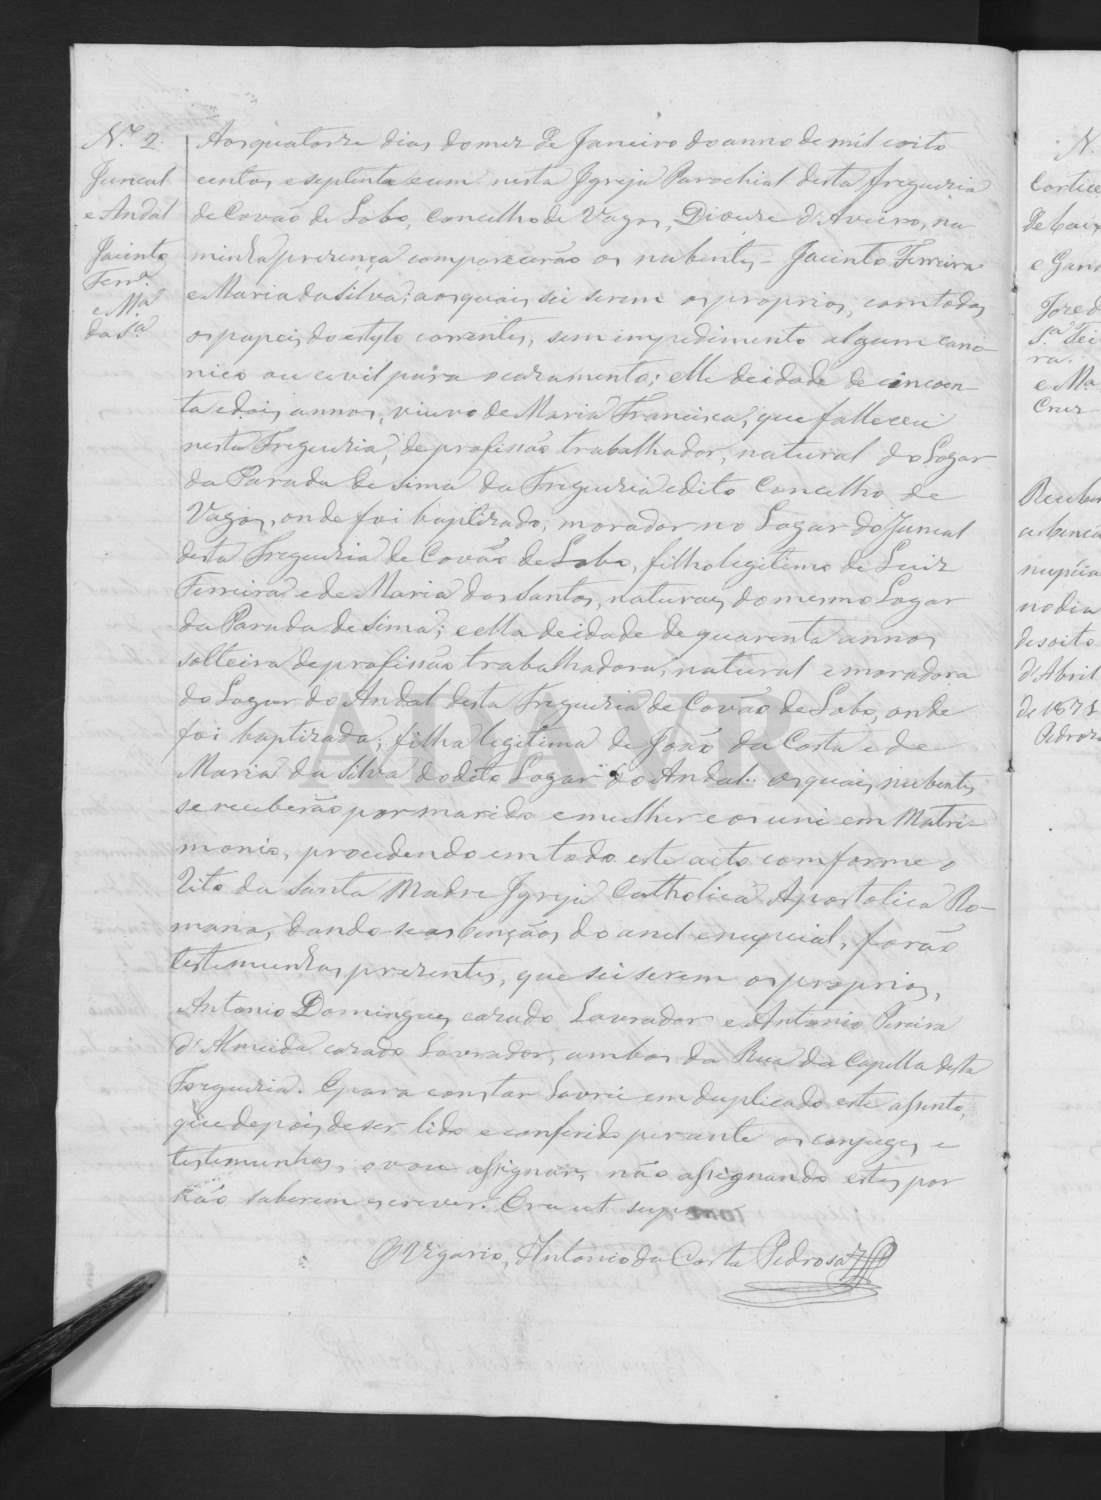 N.º 2.
Juncal
e Andal
Jacinto
Ferr.ª
e M.ª
da S.ª
Aos quatorze dias do mez de Janeiro do anno de mil oito
centos e septenta e um nesta Igreja Parochial desta freguezia
de Covão de Lobo, Concelho de Vagos, Dioceze d'Aveiro, na
minha prezença comparecerão os nubentes - Jacinto Ferreira
e Maria da Silva; aos quais sei serem os proprios, com todos
os papeis do estylo correntes, sem impedimento algum cano-
nico ou civil para o cazamento; elle de idade de cincoen-
ta e dois annos, viuvo de Maria Francisca, que falleceu
nesta Freguezia, de profissão trabalhador, natural do Logar
da Parada de sima da Freguezia e dito Concelho de
Vagos, onde foi baptizado, morador no Logar do Juncal
desta Freguezia de Covão de Lobo, filho legitimo de Luiz
Ferreira e de Maria dos Santos, naturaes do mesmo Logar
da Parada de sima; e ella de idade de quarenta annos
solteira de profissão trabalhadora, natural e moradora
do Logar do Andal desta Freguezia de Covão de Lobo, onde
foi baptizada; filha legitima de João da Costa e de
Maria da Silva do dito Logar do Andal. os quais nubentes
se receberão por marido e mulher e os uni em Matri-
monio, procedendo em todo este acto comforme o
Rito da Santa Madre Igreja Catholica Apostolica Ro-
mana, dando-se as bençãos do anel enupcial, forão
testemunhas prezentes, que sei serem os proprios,
Antonio Domingues cazado Lavrador e Antonio Pereira
d'Almeida cazado Lavrador, ambos da Rua da Capella desta
Freguezia. E para constar lavrei em duplicado este assento,
que depois de ser lido e conferido perante os conjuges e
testemunhas, o vou assignar, não assignando estes por
não saberem escrever. Era ut supra
O Vigario, Antonio da Costa Pedrosa
ADAVR
N.
Cortice
de baix
e Gan
Joze d
S.ª Fei
ra
e M.ª
Cruz
Receber
as bença
nupcia
no dia
desoito
d'Abril
de 1871
Pedroza